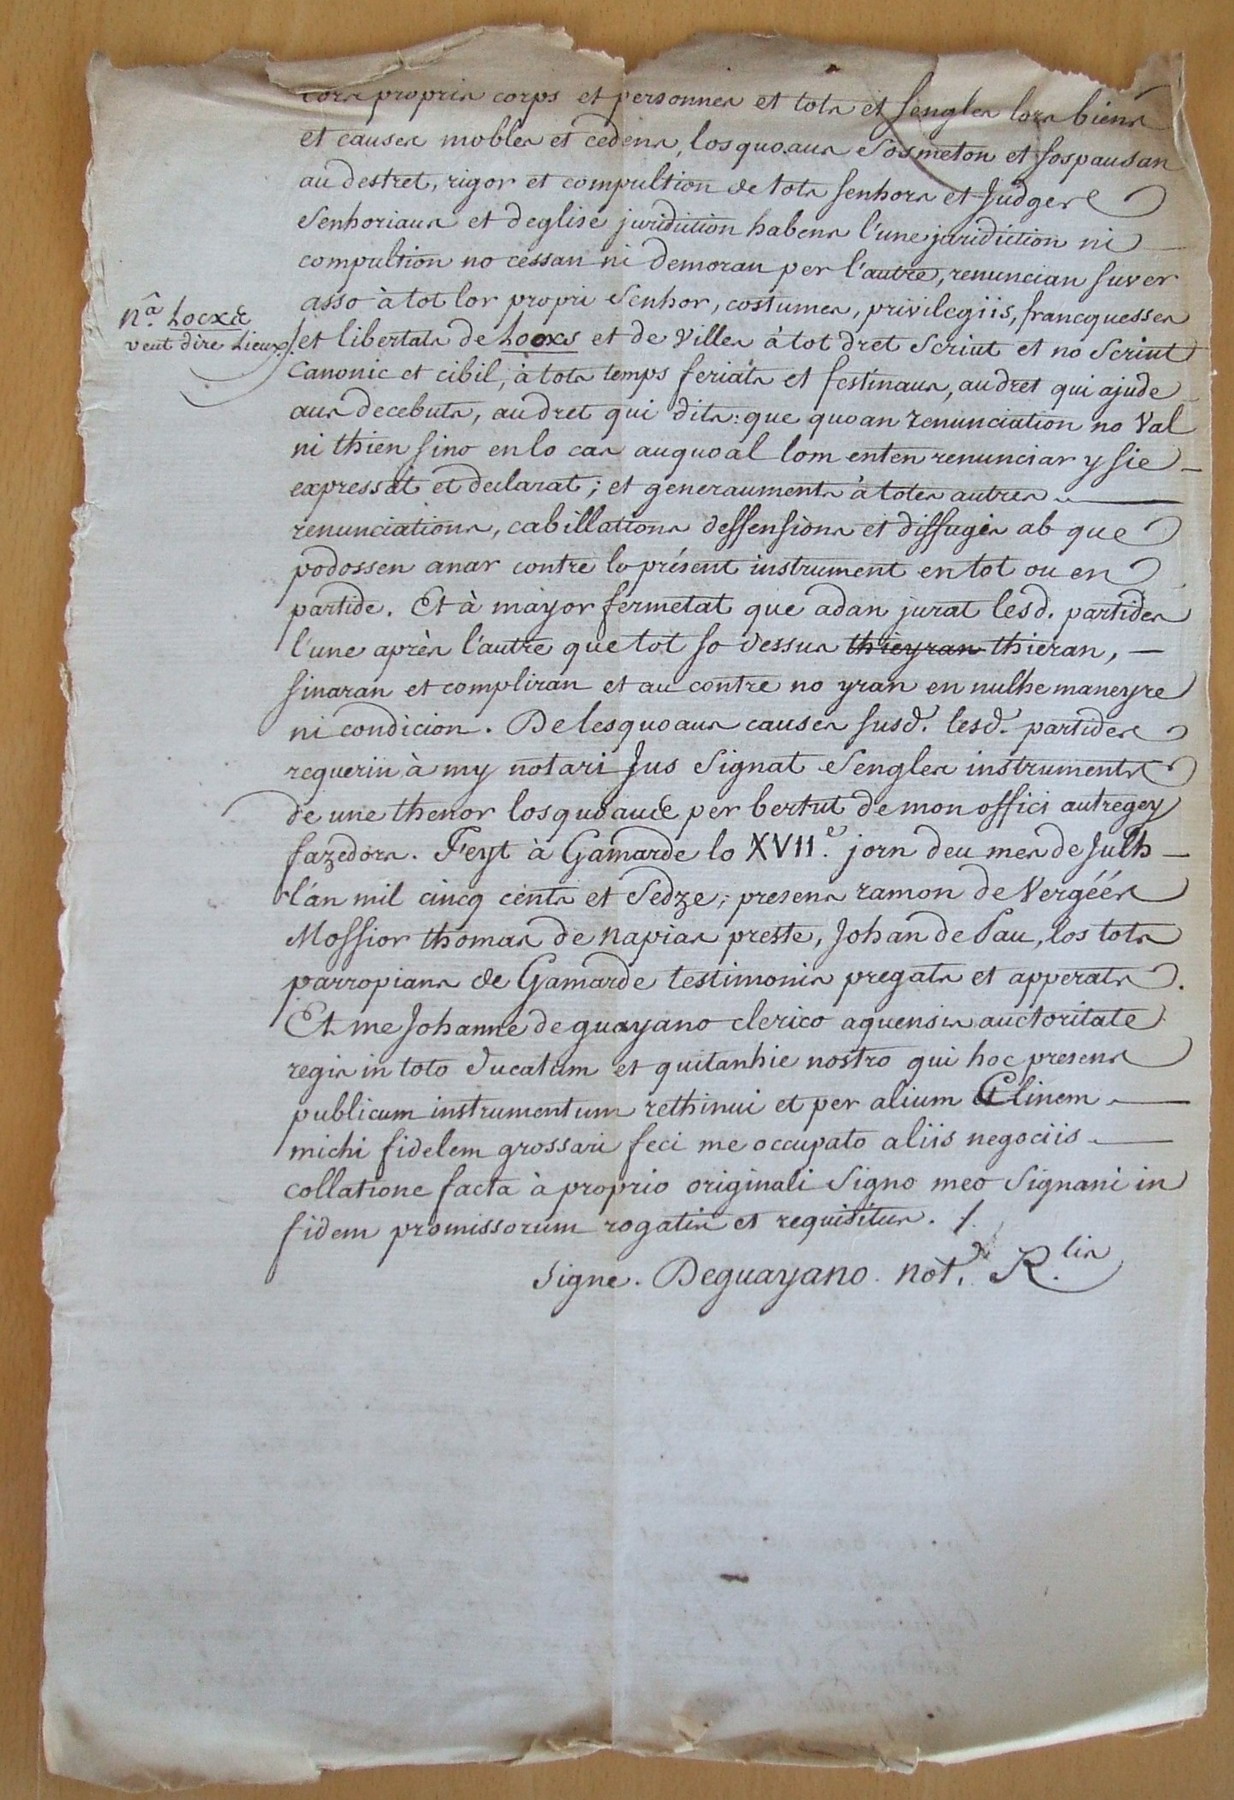 lors propris corps et personnes et tots et sengles lors biens
et causes mobles et cedens, los quoaus sosmeton et sospausan
au destret, rigor et compultion de tots senhors et Judges
senhoriaus et deglise juridiction habens l'une juridiction ni
compultion no cessan ni demoran per l'autre, renuncian suver
asso à tot lor propri senhor, costumes, privilegiis, francquesses
nª. Locxs
veut dire Lieux
et libertats de Locxs et de Villes à tot dret scriut et no scriut
Canonic et cibil, à tots temps feriats et festinaus, au dret qui ajude
aus decebuts, au dret qui dits: que quoan renunciation no val
ni thien sino en lo cas auquoal lom enten renunciar y sie
expressat et declarat; et generaumente à totes autres
renunciations, cabillations deffensions et diffugis ab que
podossen anar contre lo présent instrument en tot ou en
partide. Et à mayor fermetat que adan jurat lesd. partides
l'une après l'autre que tot so dessus thieyran thieran,
sinaran et compliran et au contre no yran en nulhe maneyre
ni condicion. De lesquoaus causes susd. lesd. partides
requerin à my notari Jus signat sengles instruments
de une thenor losquoaus per bertut de mon offici autregey
fazedors. Feyt à Gamarde lo XVII.e jorn deu mes de Julh
l'an mil cincq cents et sedze; presens ramon de Vergéés
Mossior thomas de napias preste, Johan de Pau, los tots
parropians de Gamarde testimonis pregats et apperats.
Et me Johanne de guayano clerico aquensis auctoritate
regis in toto ducatum et quitanhie nostro qui hoc presens
publicum instrumentum rethinui et per alium Clinem
michi fidelem grossari feci me occupato aliis negociis
collatione facta à proprio originali signo meo signani in
fidem promissorum rogatis et requisitus. /.
Signe. Deguayano. not. R.lis